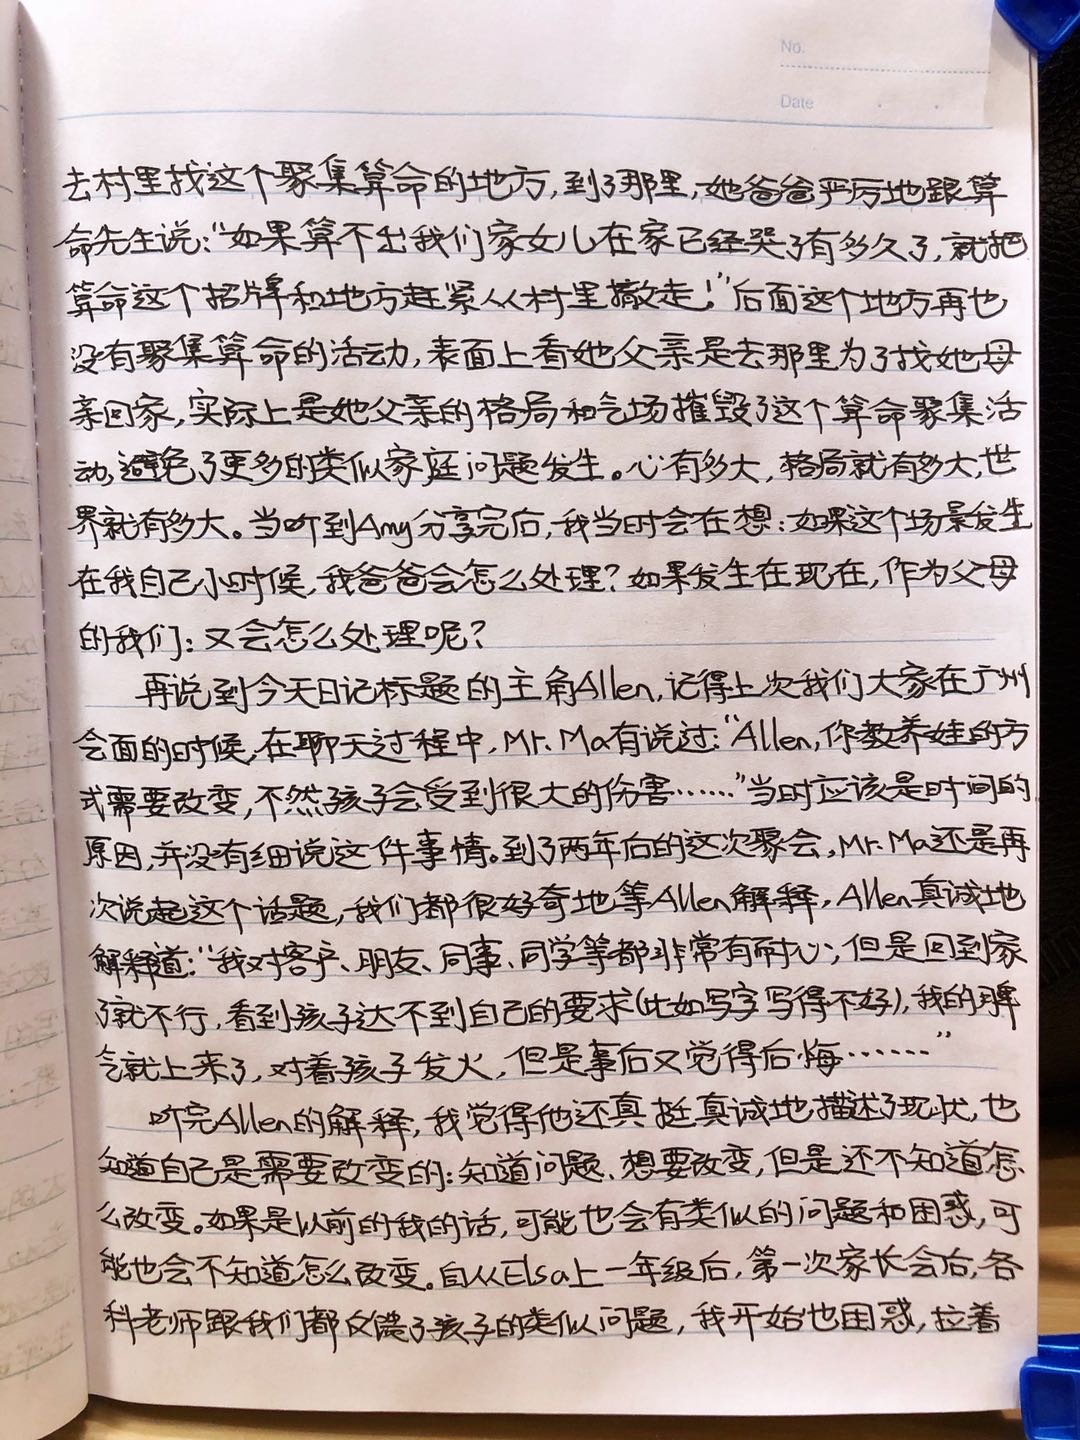 No.
Date
去村里找这个聚集算命的地方,到了那里,她爸爸严厉地跟算
命先生说:“如果算不出我们家女儿在家已经哭了有多久了,就把
算命这个招牌和地方赶紧从村里撤走!”后面这个地方再也
没有聚集算命的活动,表面上看她父亲是去那里为了找她母
亲回家,实际上是她父亲的格局和气场摧毁了这个算命聚集活
动,避免了更多的类似家庭问题发生。心有多大,格局就有多大,世
界就有多大。当听到Amy分享完后,我当时会在想:如果这个场景发生
在我自己小时候,我爸爸会怎么处理?如果发生在现在,作为父母
的我们:又会怎么处理呢?
再说到今天日记标题的主角Allen,记得上次我们大家在广州
会面的时候,在聊天过程中,Mr.Ma有说过:“Allen,你教养娃的方
式需要改变,不然孩子会受到很大的伤害……”当时应该是时间的
原因,并没有细说这件事情。到了两年后的这次聚会,Mr.Ma还是再
次说起这个话题,我们都很好奇地等Allen解释,Allen真诚地
解释道:“我对客户、朋友、同事、同学等都非常有耐心;但是回到家
了就不行,看到孩子达不到自己的要求(比如写字写得不好),我的脾
气就上来了,对着孩子发火,但是事后又觉得后悔……”
听完Allen的解释,我觉得他还真挺真诚地描述了现状,也
知道自己是需要改变的:知道问题、想要改变,但是还不知道怎
么改变。如果是以前的我的话,可能也会有类似的问题和困惑,可
能也会不知道怎么改变。自从Elsa上一年级后,第一次家长会后,各
科老师跟我们都反馈了孩子的类似问题,我开始也困惑,拉着